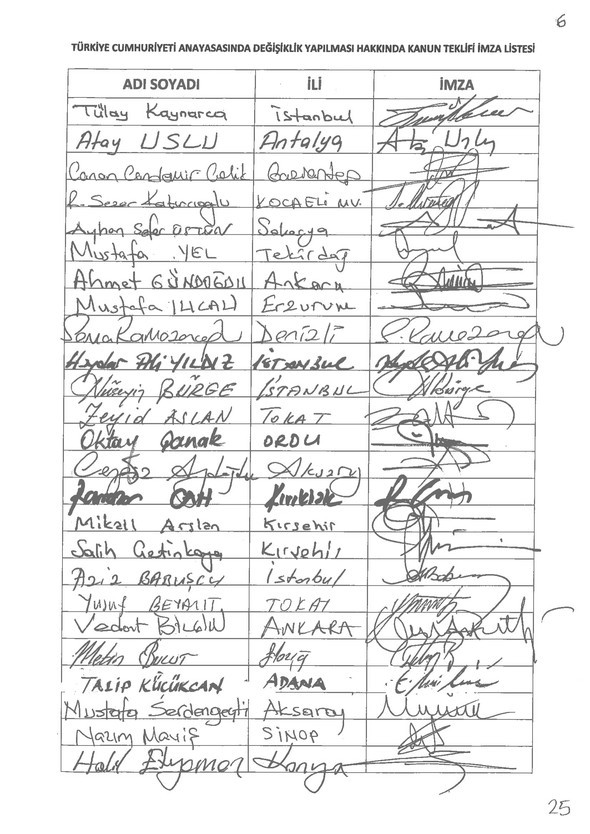 6
TÜRKİYE CUMHURİYETİ ANAYASASINDA DEĞİŞİKLİK YAPILMASI HAKKINDA KANUN TEKLİFİ İMZA LİSTESİ
ADI SOYADI İLİ İMZA
Tülay Kaynarca İstanbul
Atay USLU Antalya Atay Uslu
Canan Candemir Çelik Gaziantep
R. Sezer Katırcıoğlu KOCAELİ MV.
Ayhan Sefer ÜSTÜN Sakarya
Mustafa YEL Tekirdağ
Ahmet GÜNDOĞDU Ankara
Mustafa ILICALI Erzurum
Sema Ramazanoğlu Denizli S. Ramazanoğlu
Haydar Ali YILDIZ İSTANBUL
Hüseyin BÜRGE İSTANBUL HBürge
Zeyid ASLAN TOKAT
Oktay Çanak ORDU
Cengiz Aydoğdu Aksaray
Ramazan CAN Kırıkkale
Mikail Arslan Kırşehir
Salih Çetinkaya Kırşehir
Aziz BABUŞÇU İstanbul
Yusuf BEYAZIT TOKAT
Vedat BİLGİN ANKARA
Metin BULUT Elazığ
TALİP KÜÇÜKCAN ADANA
Mustafa Serdengeçti Aksaray
Nazım Maviş SİNOP
Halil Etyemez Konya
25